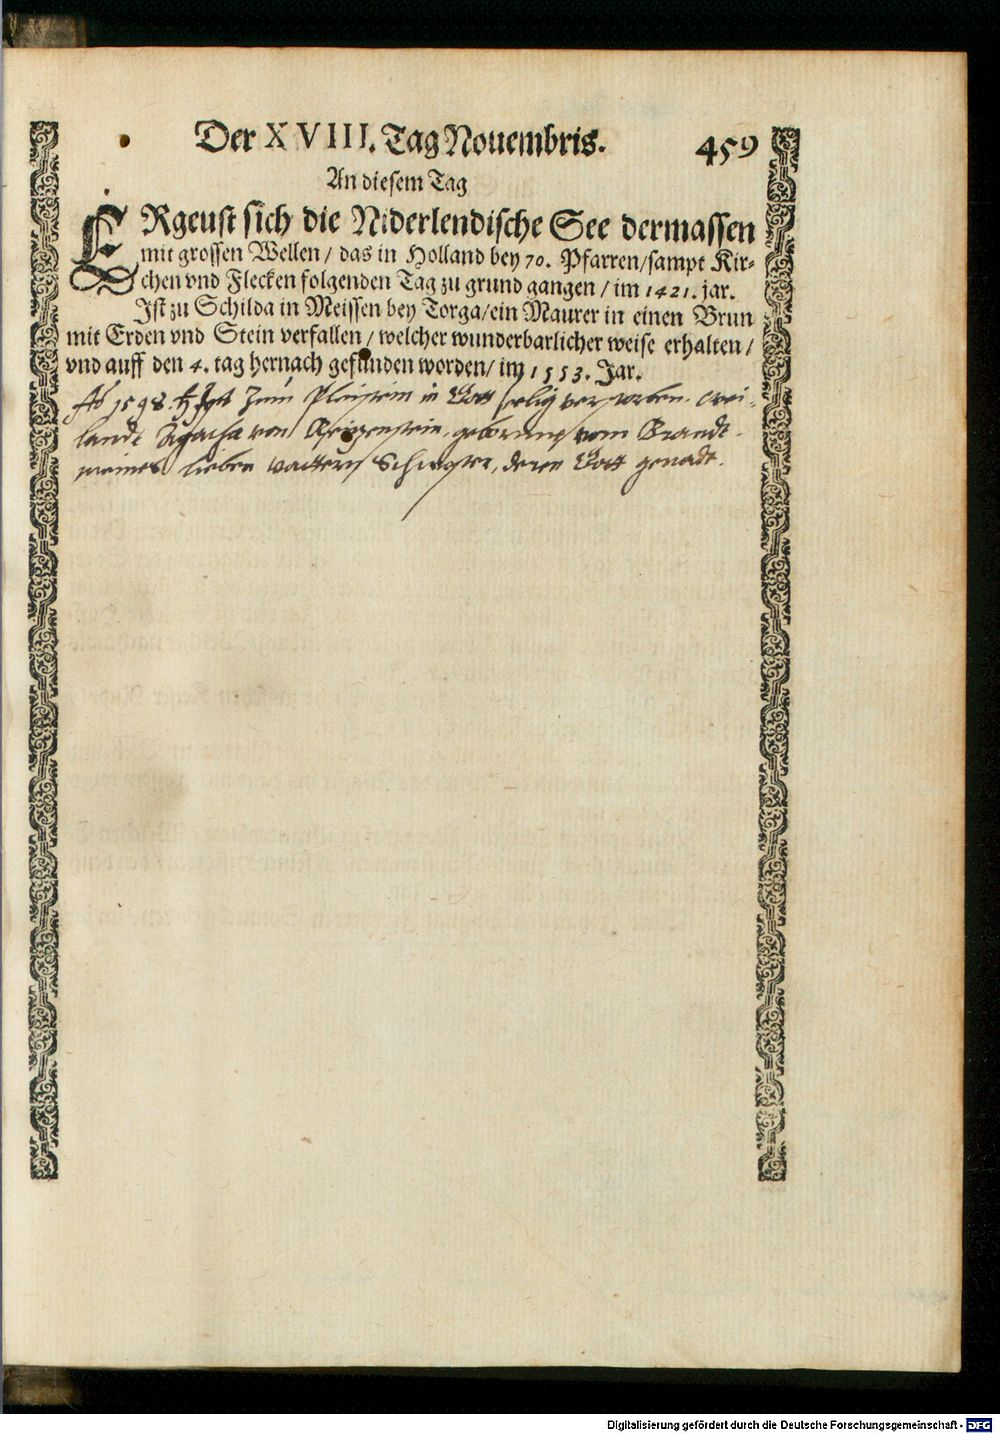 Der XVIII. Tag Nouembris. 459
An diesem Tag
ERgeust sich die Niderlendische See dermassen
mit grossen Wellen / das in Holland bey 70. Pfarren / sampt Kir-
chen vnd Flecken folgenden Tag zu grund gangen / im 1421. jar.
Ist zu Schilda in Meissen bey Torga / ein Maurer in einen Brun
mit Erden vnd Stein verfallen / welcher wunderbarlicher weise erhalten /
vnd auff den 4. tag hernach gefunden worden / im 1553. Jar.
Ao 1598. zum in Gott selig verstorben. wei-
landt von Reizenstein, vom Brandt.
meines lieben vatters Schwester, deren Gott genadt.
Digitalisierung gefördert durch die Deutsche Forschungsgemeinschaft - DFG